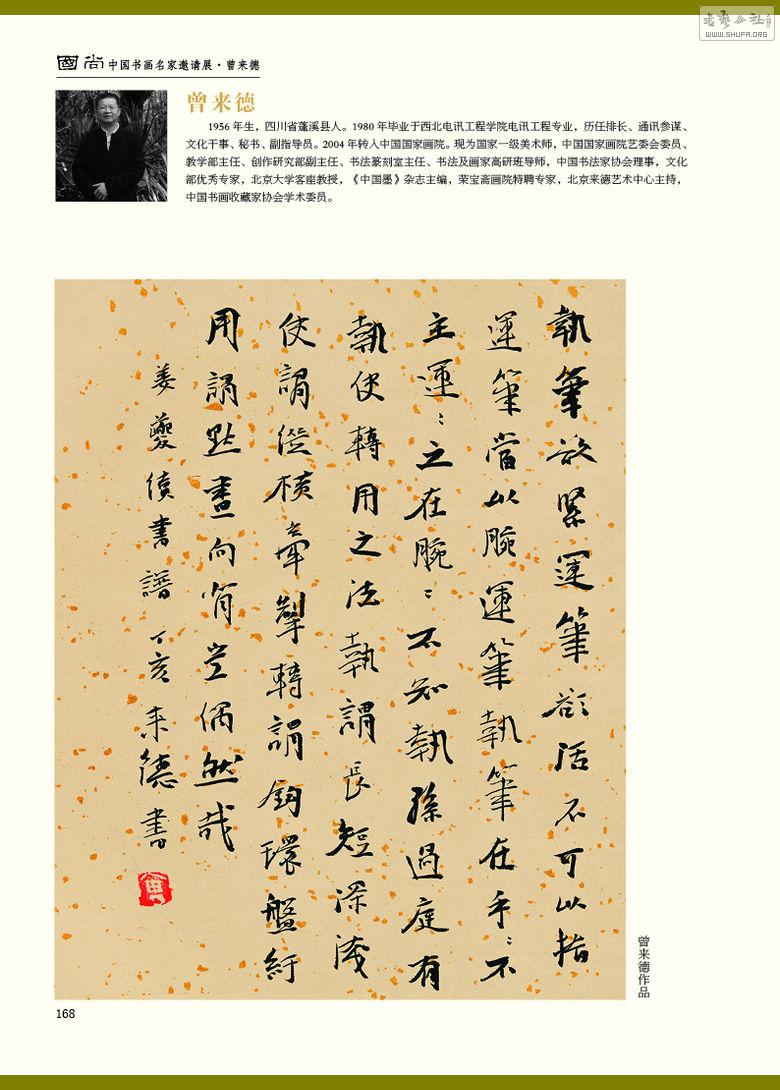 書藝公社
WWW.SHUFA.ORG
國尚 中国书画名家邀请展·曾来德
曾来德
1956 年生，四川省蓬溪县人。1980 年毕业于西北电讯工程学院电讯工程专业，历任排长、通讯参谋、
文化干事、秘书、副指导员。2004 年转入中国国家画院。现为国家一级美术师，中国国家画院艺委会委员、
教学部主任、创作研究部副主任、书法篆刻室主任、书法及画家高研班导师，中国书法家协会理事，文化
部优秀专家，北京大学客座教授，《中国墨》杂志主编，荣宝斋画院特聘专家，北京来德艺术中心主持，
中国书画收藏家协会学术委员。
執筆欲緊運筆欲活不可以指
運筆當以腕運筆執筆在手〻不
主運〻之在腕〻不知執孫過庭有
執使轉用之法執謂長短深淺
使謂縱橫牽掣轉謂鉤環盤紆
用謂點畫向背豈偶然哉
姜夔續書譜丁亥来德書
曾来德作品
168